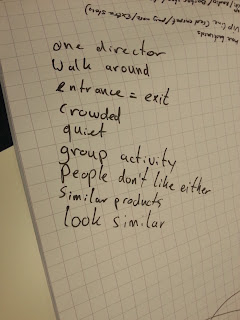 one director
Walk around
entrance = exit
crowded
quiet
group activity
People don't like either
Similar products
look similar